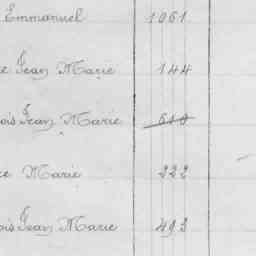 Emmanuel 1061
ce Jean Marie 144
ois Jean Marie 610
ce Marie 222
ois Jean Marie 493